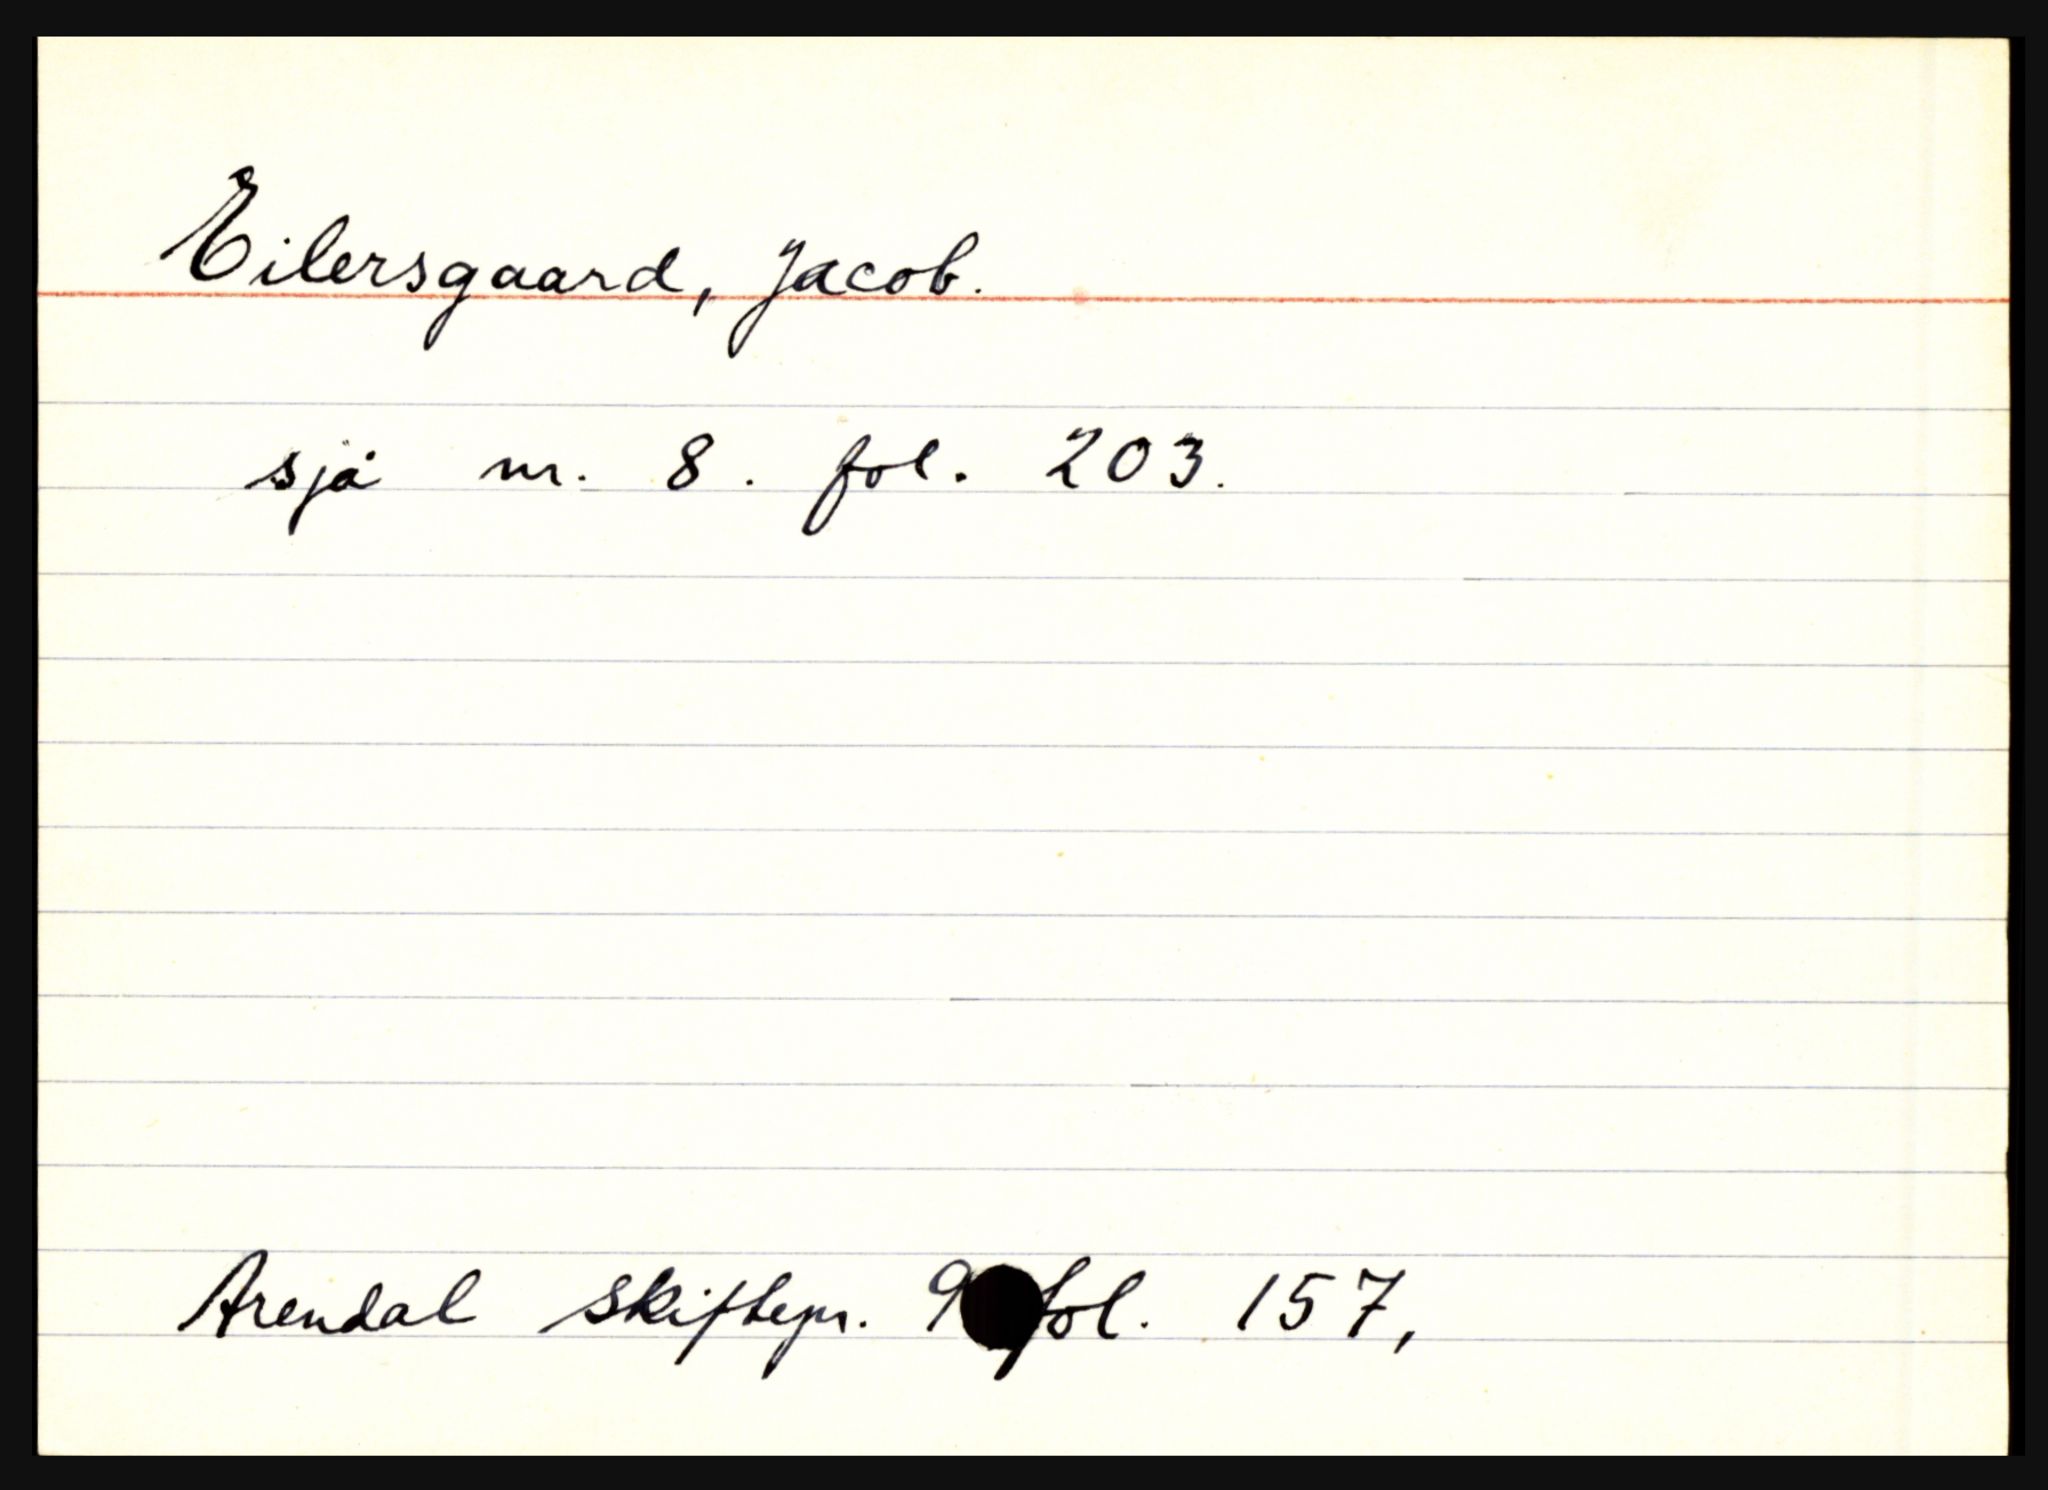 Eilersgaard, Jacob.
sjå nr. 8. fol. 203.
Arendal skiftepr. 9 fol. 157,